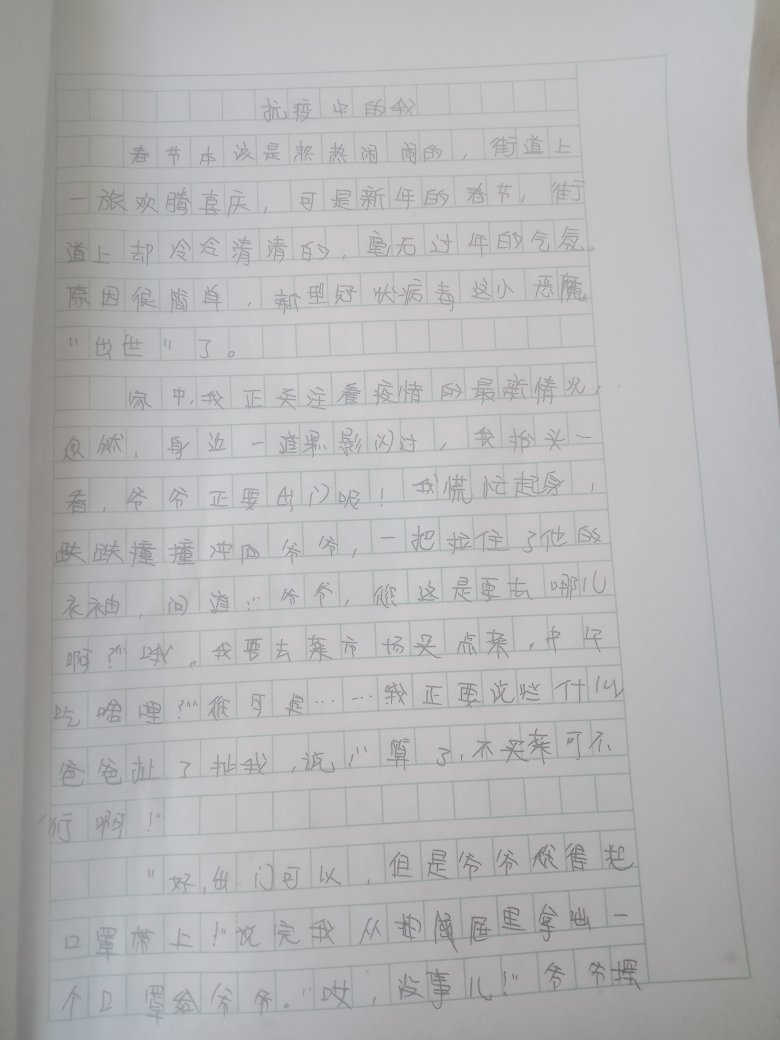 抗疫中的我
春节本该是热热闹闹的，街道上
一旅欢腾喜庆，可是新年的春节，街
道上却冷冷清清的，毫无过年的气氛。
原因很简单，新型冠状病毒这小恶魔
“出世”了。
家中，我正关注着疫情的最新情况，
忽然，身边一道黑影闪过，我抬头一
看，爷爷正要出门呢！我慌忙起身，
跌跌撞撞冲向爷爷，一把拉住了他的
衣袖，问道：“爷爷，您这是要去哪儿
啊？”“哦，我要去菜市场买点菜，中午
吃啥哩？”“您可是……我正要说些什么
爸爸扯了扯我，说：“算了，不买菜可不
行啊！”
“好，出门可以，但是爷爷您得把
口罩带上！”说完我从抽屉里拿出一
个口罩给爷爷。“哎，没事儿！”爷爷摆